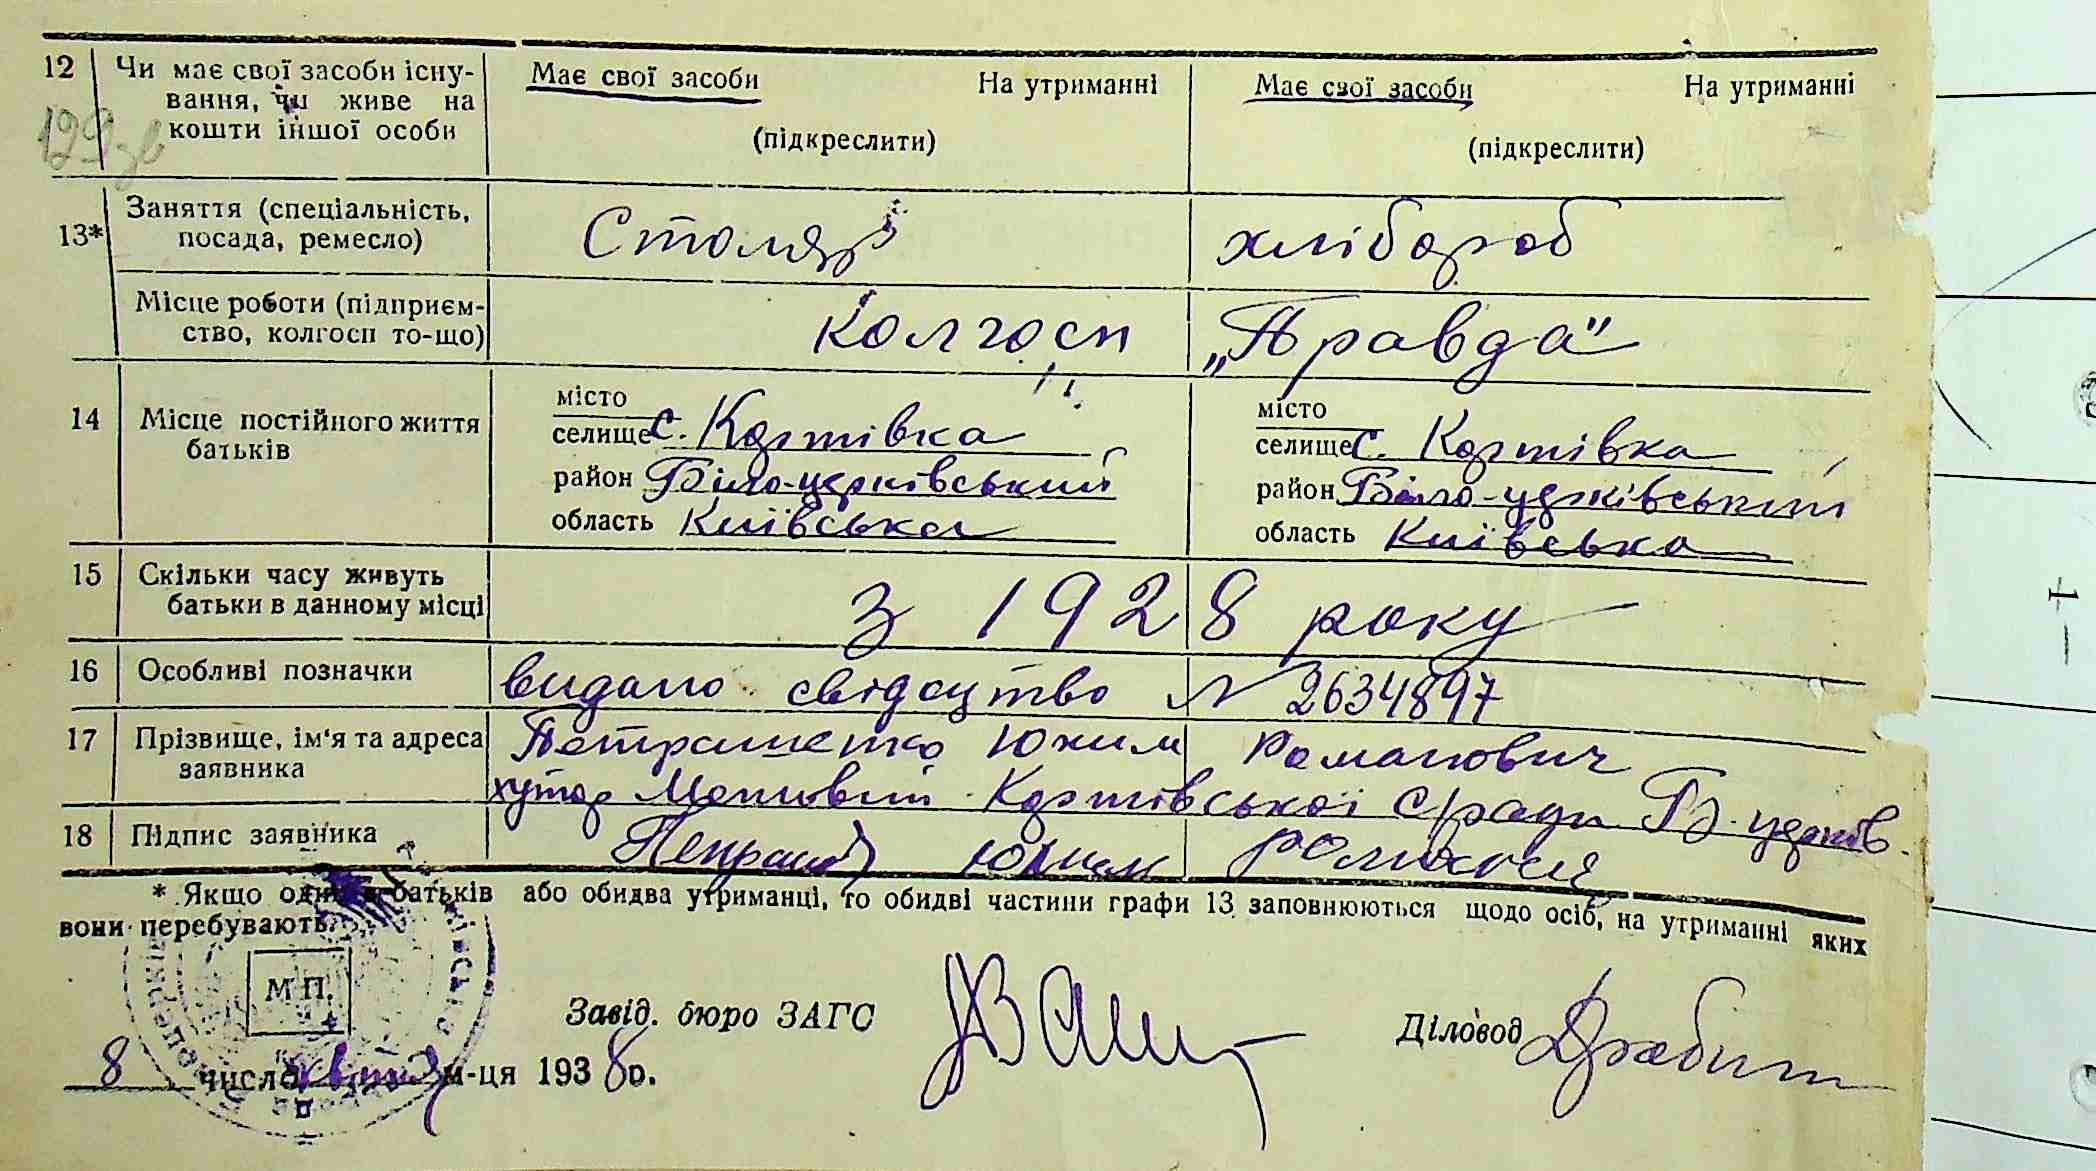 12 Чи має свої засоби існу- Має свої засоби На утриманні Має свої засоби На утриманні
вання, чи живе на
кошти іншої особи (підкреслити) (підкреслити)
129 зв
13* Заняття (спеціальність, Столяр хлібороб
посада, ремесло)
Місце роботи (підприєм- Колгосп „Правда"
ство, колгосп то-що)
14 Місце постійного життя місто місто
батьків селище с. Коржівка селище с. Коржівка
район Біло-церківський район Біло-церківський
область Київська область Київська
15 Скільки часу живуть З 1928 року
батьки в данному місці
16 Особливі позначки видано свідоцтво N 2634897
17 Прізвище, ім'я та адреса Петрашенко Юхим Романович
заявника хутор Коржівської с/ради Б-церків.
18 Підпис заявника Юхим
* Якщо один з батьків або обидва утриманці, то обидві частини графи 13 заповнюються щодо осіб, на утриманні яких
вони перебувають.
М.П.
Завід. бюро ЗАГС Діловод
8 число м-ця 1938 р.